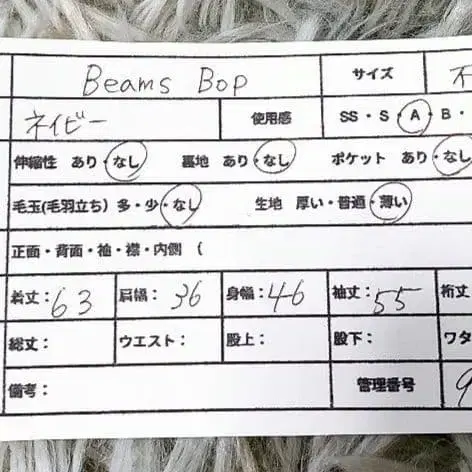 Beams Bop サイズ
ネイビー 使用感 SS・S・A・B・
伸縮性 あり・なし 裏地 あり・なし ポケット あり・なし
毛玉(毛羽立ち) 多・少・なし 生地 厚い・普通・薄い
正面・背面・袖・襟・内側 (
着丈:63 肩幅:36 身幅:46 袖丈:55 裄丈
総丈: ウエスト: 股上: 股下: ワタ
備考: 管理番号